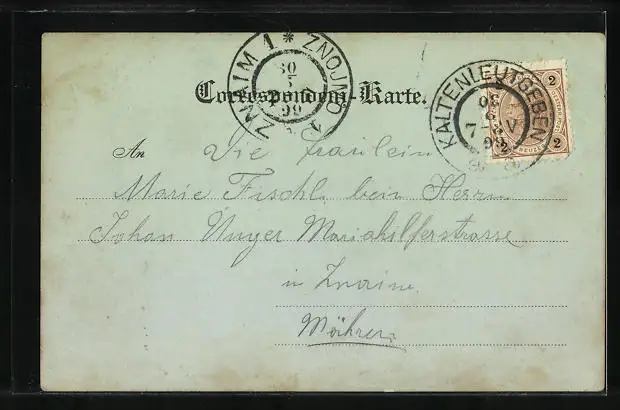 ZNAIM 1 * ZNOJMO
30
5
99
Correspondenz-Karte.
KALTENLEUTGEBEN
30
5
7-V
99
2
2 2
An Die Fräulein
Marie Fischl bein Herrn
Johan Unger Mariahilferstrasse
in Znaim
Mähren